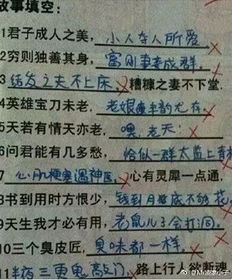 故事填空:
1君子成人之美,小人夺人所爱
2穷则独善其身,富则妻妾成群.
3结发之夫不上床,糟糠之妻不下堂.
4英雄宝刀未老,老娘风韵尤存.
5天若有情天亦老,嘿,老天!
6问君能有几多愁,恰似一群太监上青楼
7心肌梗塞遇神医,心有灵犀一点通.
8书到用时方恨少,钱到月底不够花
9天生我才必有用,老鼠儿子会打洞.
10三个臭皮匠,臭味都一样.
11半夜三更鬼敲门,路上行人欲断魂